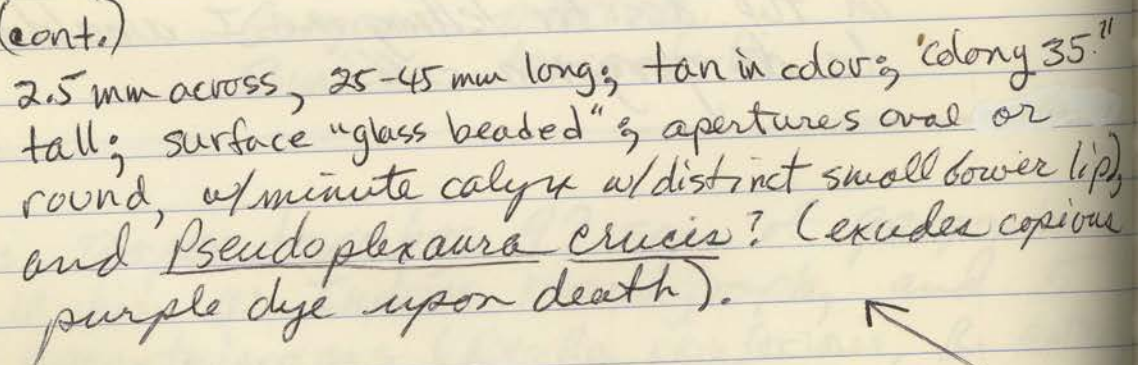 (cont.)
2.5 mm across, 25-45 mm long; tan in color; "colony 35"
tall; surface "glass beaded"; apertures oval or
round, w/minute calyx w/distinct small lower lip),
and Pseudoplexaura crucis? (exudes copious
purple dye upon death).